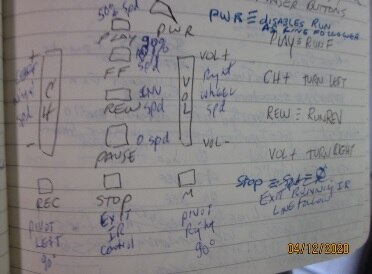 LASER BUTTONS
50% Spd
PWR ≡ DISABLES RUN
AS LINE FOLLOWER
PLAY PWR
PLAY ≡ RUN F
99%
Spd
FF
+
CH
-
Spd
INV
Spd
REW
VOL+
VOL
Right
wheel
Spd
VOL-
CH+ TURN LEFT
REW ≡ RUN REV
0 Spd
PAUSE
VOL+ TURN RIGHT
REC STOP M
STOP ≡ Spd = 0
EXIT RUNNING IR
LINE Follow
PIVOT
LEFT
90°
EXIT
IR
Control
PIVOT
Right
90°
04/12/2020